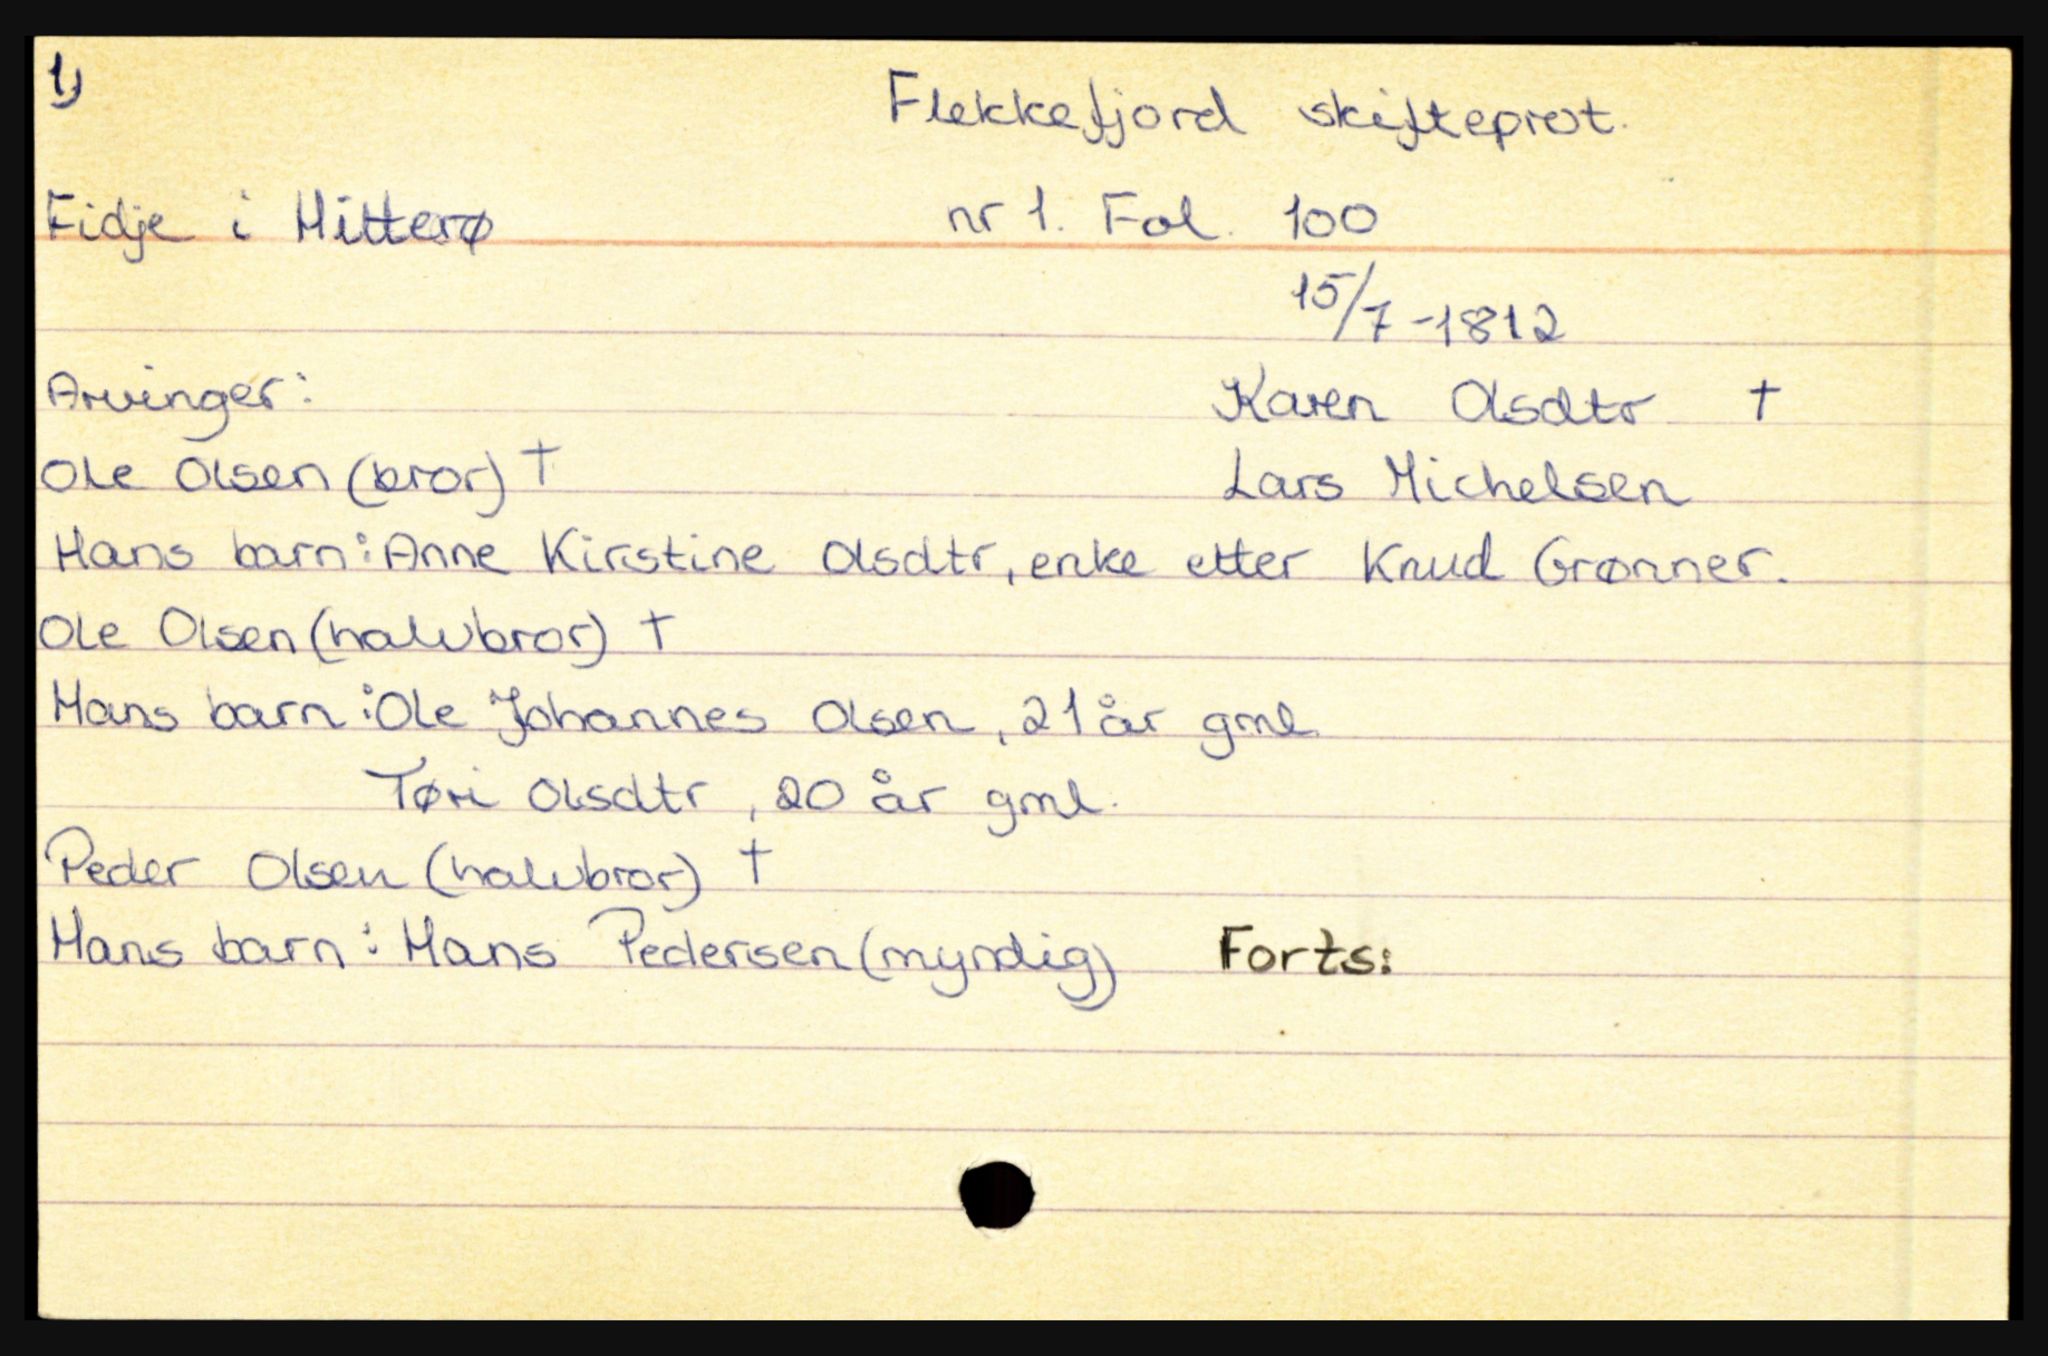 1)
Flekkefjord skifteprot.
Fidje i Hitterø nr 1. Fol. 100
15/7-1812
Arvinger: Karen Olsdtr †
Ole Olsen (bror) † Lars Michelsen
Hans barn: Anne Kirstine Olsdtr, enke etter Knud Grønner.
Ole Olsen (halvbror) †
Hans barn: Ole Johannes Olsen, 21 år gml.
Tøri Olsdtr, 20 år gml.
Peder Olsen (halvbror) †
Hans barn: Hans Pedersen (myndig) Forts: